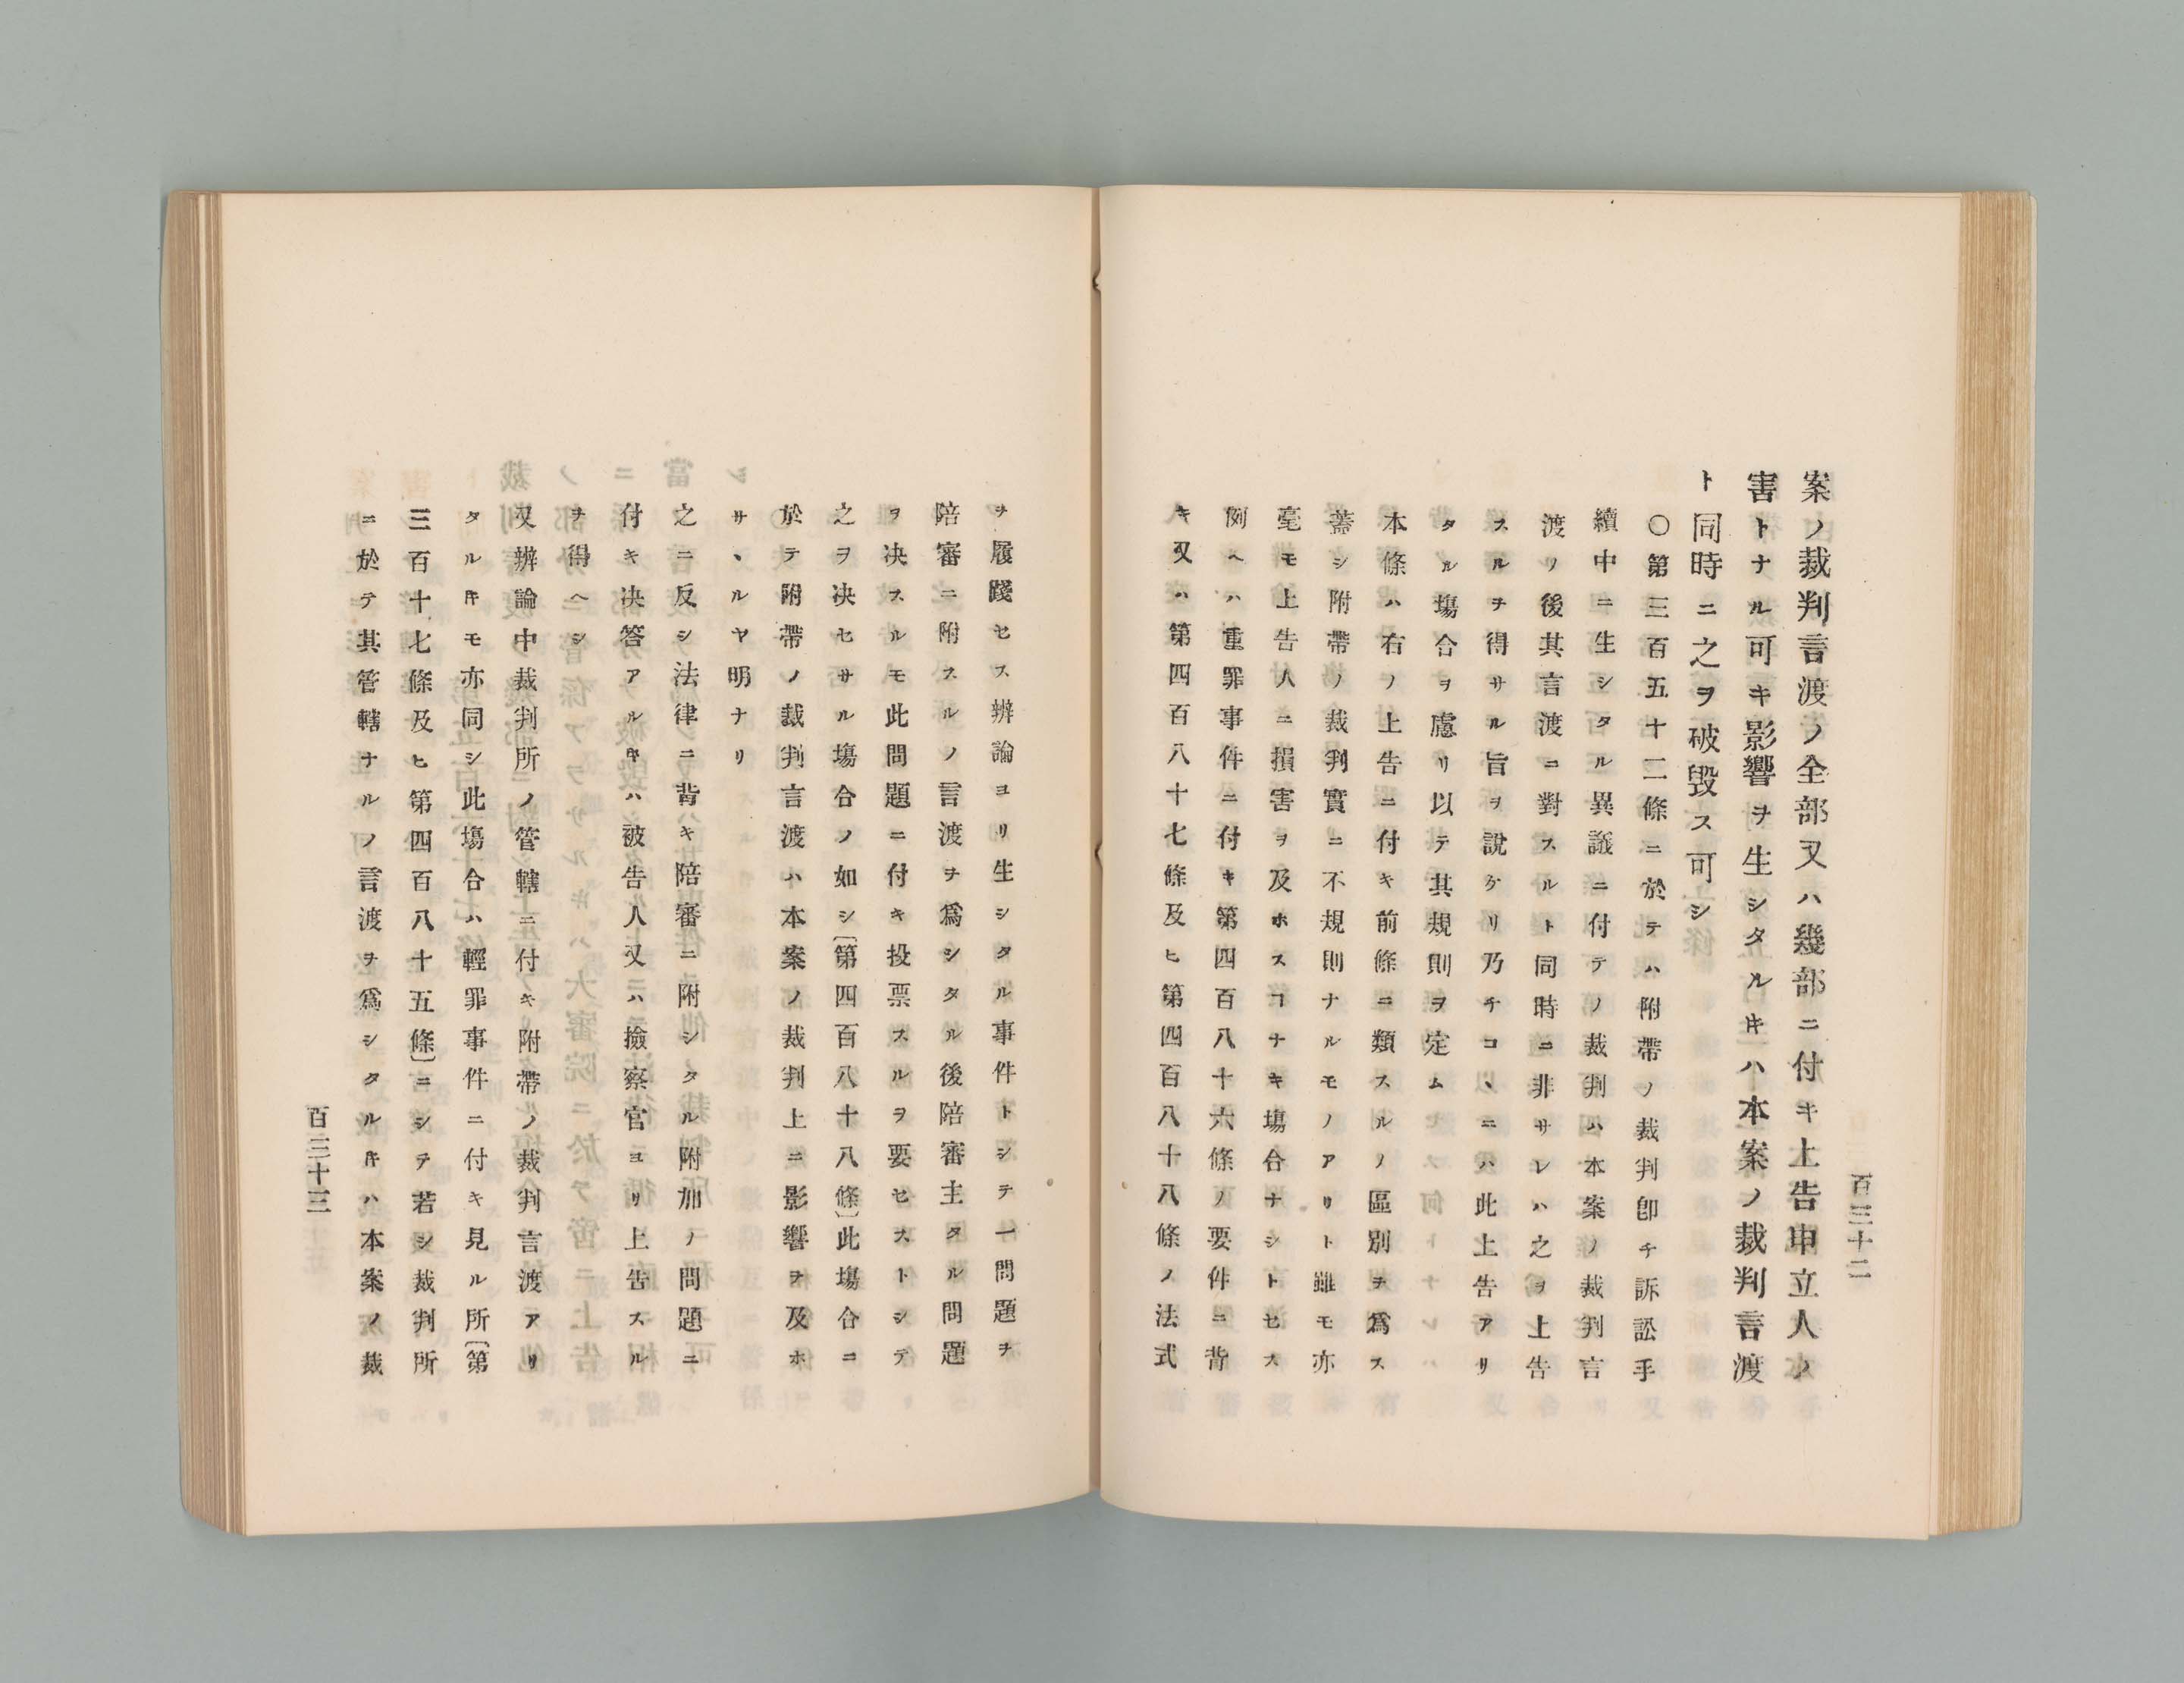 百三十二
案ノ裁判言渡ノ全部又ハ幾部ニ付キ上告申立人ノ
害トナル可キ影響ヲ生シタルキハ本案ノ裁判言渡
ト同時ニ之ヲ破毀ス可シ
〇第三百五十二條ニ於テハ附帶ノ裁判卽チ訴訟手
續中ニ生シタル異議ニ付テノ裁判ハ本案ノ裁判言
渡リ後其言渡ニ對スルト同時ニ非サレハ之ヲ上告
スルヲ得サル旨ヲ說ケリ乃チコヽニハ此上告アリ
タル塲合ヲ慮リ以テ其規則ヲ定ム
本條ハ右ノ上告ニ付キ前條ニ類スルノ區別ヲ爲ス
蓋シ附帶ノ裁判實ニ不規則ナルモノアリト雖モ亦
毫モ上告人ニ損害ヲ及ホスコナキ塲合ナシトセス
例ヘハ重罪事件ニ付キ第四百八十六條ノ要件ニ背
キ又ハ第四百八十七條及ヒ第四百八十八條ノ法式
ヲ履踐セス辨論ヨリ生シタル事件トシテ一問題ヲ
陪審ニ附スルノ言渡ヲ爲シタル後陪審主タル問題
ヲ决スルモ此問題ニ付キ投票スルヲ要セストシテ
之ヲ决セサル塲合ノ如シ〔第四百八十八條〕此塲合ニ
於テ附帶ノ裁判言渡ハ本案ノ裁判上ニ影響ヲ及ホ
サヽルヤ明ナリ
之ニ反シ法律ニ背キ陪審ニ附シタル附加ノ問題ニ
付キ决答アルキハ被告人又ハ撿察官ヨリ上告スル
ヲ得ヘシ
又辨論中裁判所ノ管轄ニ付キ附帶ノ裁判言渡アリ
タルキモ亦同シ此塲合ハ輕罪事件ニ付キ見ル所〔第
三百十七條及ヒ第四百八十五條〕ニシテ若シ裁判所
ニ於テ其管轄ナルノ言渡ヲ爲シタルキハ本案ノ裁
百三十三